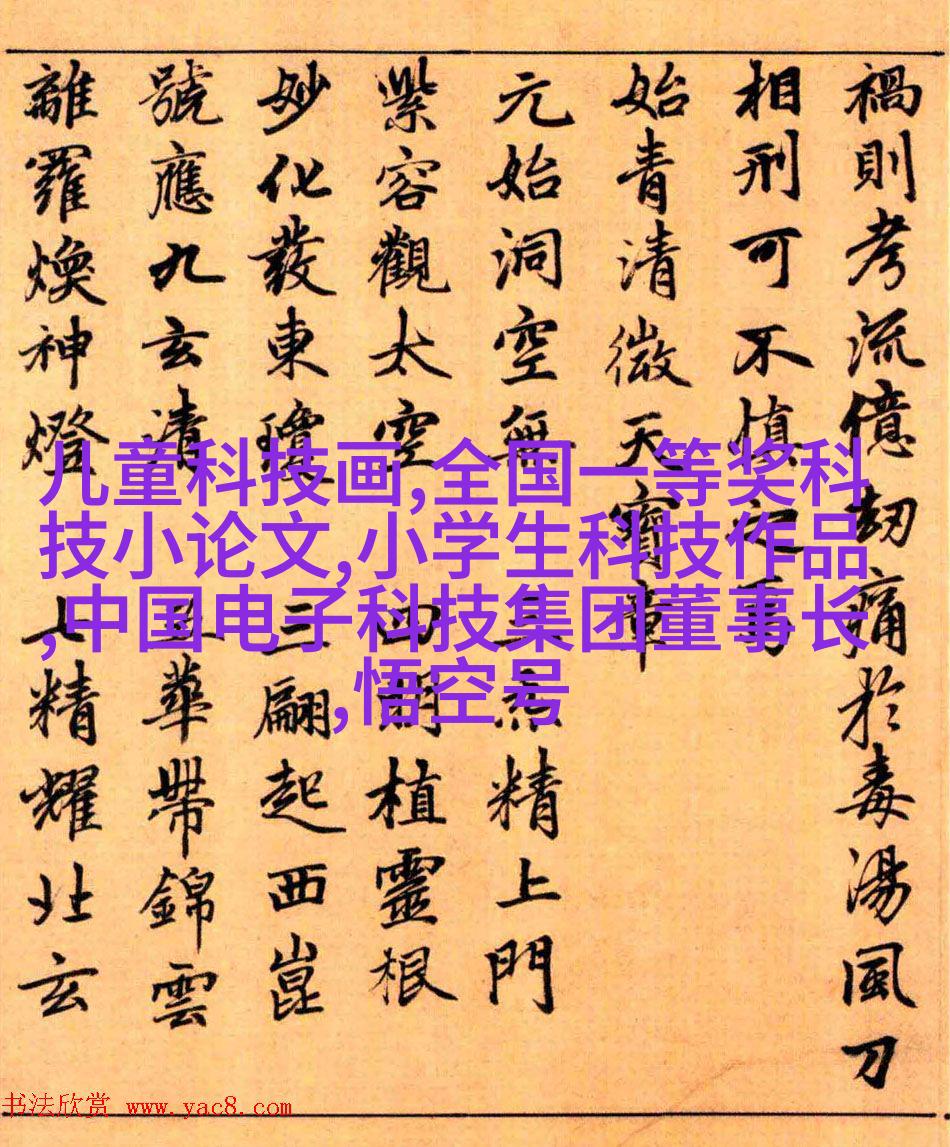 禍則考流億劫痛於毒湯風刀
相刑可不慎
始青清微天寶章
元始洞空無 精上門
紫容觀太空 四明植靈根
妙化發東瓊 三翩起西崑
號應九玄清 五華帶錦雲
離羅煥神燈 七精耀北玄
儿童科技画,全国一等奖科
技小论文,小学生科技作品
,中国电子科技集团董事长
,悟空号
书法欣赏 www.yac8.com